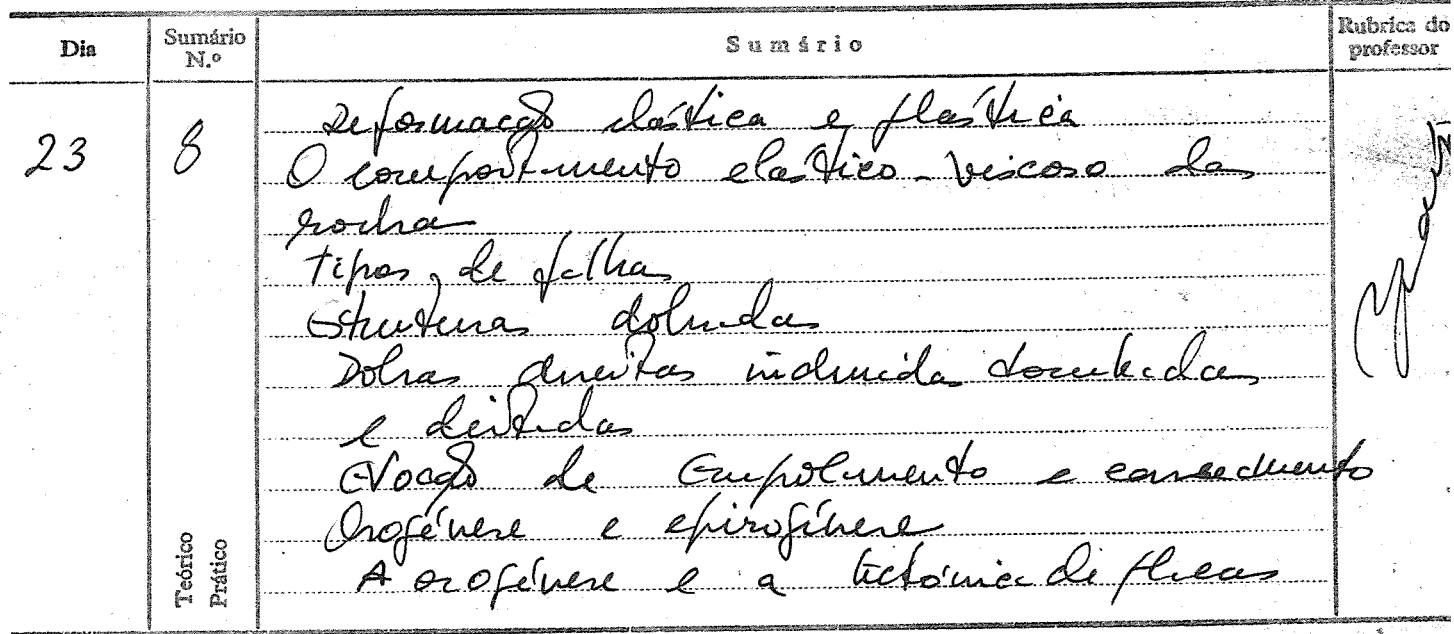 Dia
Sumário N.º
Sumário
Rubrica do professor
23
8
Deformação elástica e plástica
O comportamento elástico-viscoso das
rochas
Tipos de falhas
Estruturas dobradas
Dobras direitas inclinadas tombadas
e deitadas
Noção de Empolamento e
Orogénese e epirogénese
A orogénese e a tectónica de placas
Teórico
Prático